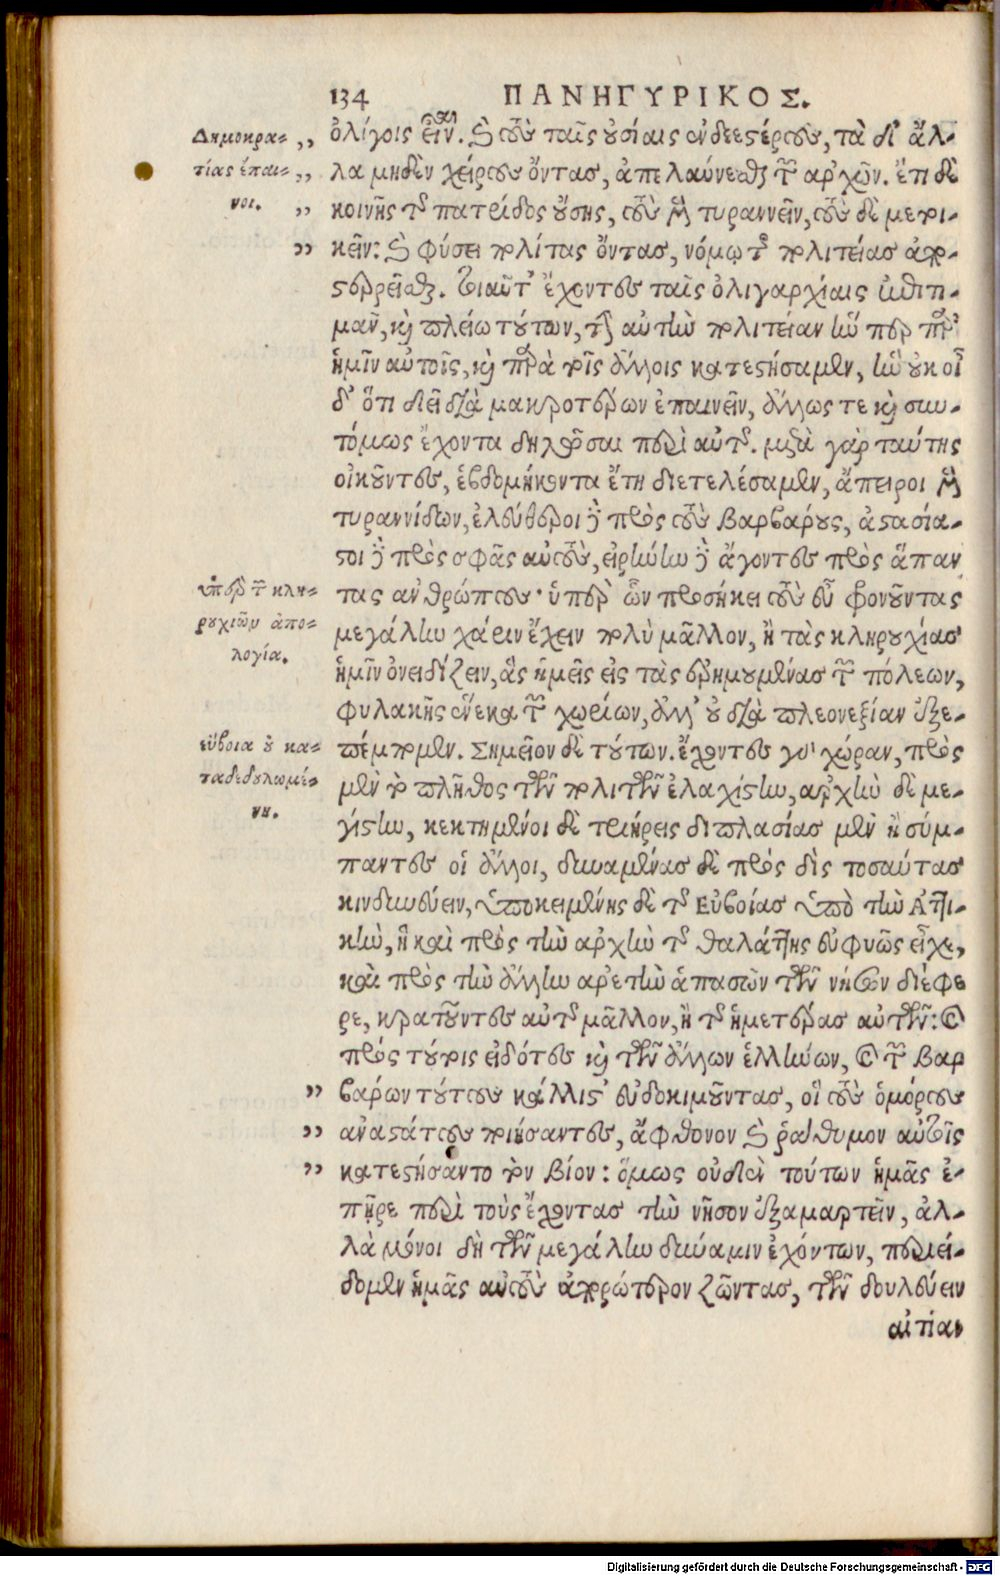 134 ΠΑΝΗΓΥΡΙΚΟΣ.
Δημοκρα-
τίας ἔπαι-
νοι.
ὀλίγοις εἶναι. καὶ τοὺς ταῖς οὐσίαις ἐνδεεστέρους, τὰ δ' ἄλ-
λα μηδὲν χείρους ὄντας, ἀπελαύνεσθαι τῶν ἀρχῶν. ἔτι δὲ
κοινῆς τῆς πατρίδος οὔσης, τοὺς μὲν τυραννεῖν, τοὺς δὲ μετοι-
κεῖν: καὶ φύσει πολίτας ὄντας, νόμῳ τῆς πολιτείας ἀπο-
στερεῖσθαι. τοιαῦτ' ἔχοντες ταῖς ὀλιγαρχίαις ἐπιτι-
μᾶν, καὶ πλείω τούτων, τὴν αὐτὴν πολιτείαν ἥνπερ παρ'
ἡμῖν αὐτοῖς, καὶ παρὰ τοῖς ἄλλοις κατεστήσαμεν, ἣν οὐκ οἶ
δ' ὅτι δεῖ διὰ μακροτέρων ἐπαινεῖν, ἄλλως τε καὶ συν-
τόμως ἔχοντα δηλῶσαι περὶ αὐτῆς. μετὰ γὰρ ταύτης
οἰκοῦντες, ἑβδομήκοντα ἔτη διετελέσαμεν, ἄπειροι μὲν
τυραννίδων, ἐλεύθεροι δὲ πρὸς τοὺς βαρβάρους, ἀστασία-
στοι δὲ πρὸς σφᾶς αὐτοὺς, εἰρήνην δὲ ἄγοντες πρὸς ἅπαν
ὑπὲρ τῶν κλη-
ρουχιῶν ἀπο-
λογία.
τας ἀνθρώπους· ὑπὲρ ὧν προσήκει τοὺς εὖ φρονοῦντας
μεγάλην χάριν ἔχειν πολὺ μᾶλλον, ἢ τὰς κληρουχίας
ἡμῖν ὀνειδίζειν, ἃς ἡμεῖς εἰς τὰς ἐρημουμένας τῶν πόλεων,
φυλακῆς ἕνεκα τῶν χωρίων, ἀλλ' οὐ διὰ πλεονεξίαν ἐξε-
εὔβοια οὐ κα-
ταδεδουλωμέ-
νη.
πέμπομεν. Σημεῖον δὲ τούτων. ἔχοντες γὰρ χώραν, πρὸς
μὲν τὸ πλῆθος τῶν πολιτῶν ἐλαχίστην, ἀρχὴν δὲ με-
γίστην, κεκτημένοι δὲ τριήρεις διπλασίας μὲν ἢ σύμ-
παντες οἱ ἄλλοι, δυναμένας δὲ πρὸς δὶς τοσαύτας
κινδυνεύειν, ὑποκειμένης δὲ τῆς Εὐβοίας ὑπὸ τὴν Ἀττι-
κὴν, ἣ καὶ πρὸς τὴν ἀρχὴν τῆς θαλάττης εὐφυῶς εἶχε,
καὶ πρὸς τὴν ἄλλην ἀρετὴν ἁπασῶν τῶν νήσων διέφε
ρε, κρατοῦντες αὐτῆς μᾶλλον, ἢ τῆς ἡμετέρας αὐτῶν: καὶ
πρὸς τούτοις εἰδότες καὶ τῶν ἄλλων ἑλλήνων, καὶ τῶν βαρ
βάρων τούτους κάλλιστ' εὐδοκιμοῦντας, οἳ τοὺς ὁμόρους
ἀναστάτους ποιήσαντες, ἄφθονον καὶ ῥᾴθυμον αὑτοῖς
κατεστήσαντο τὸν βίον: ὅμως οὐδὲν τούτων ἡμᾶς ἐ-
πῆρε περὶ τοὺς ἔχοντας τὴν νῆσον ἐξαμαρτεῖν, ἀλ-
λὰ μόνοι δὴ τῶν μεγάλην δύναμιν ἐχόντων, περιεί-
δομεν ἡμᾶς αὐτοὺς ἀπορώτερον ζῶντας, τῶν δουλεύειν
αἰτίαν
Digitalisierung gefördert durch die Deutsche Forschungsgemeinschaft - DFG